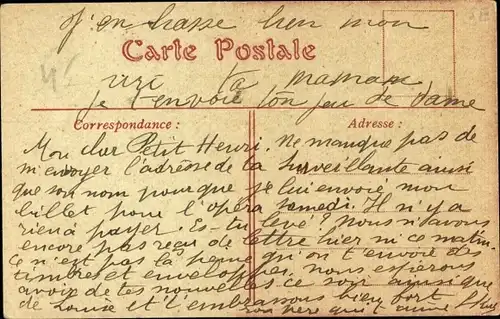 J'en brasse bien mon
Carte Postale
ta maman
je t'envoie ton jeu de dame
Correspondance :
Adresse :
Mon cher Petit Henri. Ne manque pas de
m'envoyer l'adresse de ta surveillante ainsi
que son nom pour que je lui envoie mon
billet pour l'opéra samedi. Il n'y a
rien à payer. Es-tu levé ? Nous n'avons
encore pas reçu de lettre hier ni ce matin
ce n'est pas la peine qu'on t'envoie des
timbres et enveloppes. nous espérons
avoir de tes nouvelles ce soir ainsi que
de Louise et t'embrassons bien fort
ton père qui t'aime